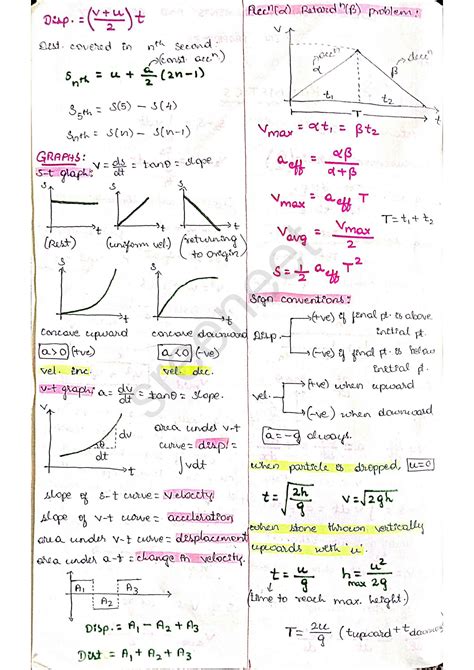 Disp. = (v+u/2) t
Dist. covered in nth second
(const accn)
Snth = u + a/2 (2n-1)
S5th = S(5) - S(4)
Snth = S(n) - S(n-1)
GRAPHS:
s-t graph: v = ds/dt = tanθ = slope
S
S
S
t
t
t
(Rest) (uniform vel.) (returning to origin)
S
S
t
t
concave upward concave downward
a>0 (+ve) a<0 (-ve)
vel. inc. vel. dec.
v-t graph: a = dv/dt = tanθ = slope.
V
θ
dv
dt
t
area under v-t
curve = displ =
∫vdt
slope of s-t curve = velocity
slope of v-t curve = acceleration
area under v-t curve = displacement
area under a-t = change in velocity.
A1 A3
A2
Disp. = A1 - A2 + A3
Dist = A1 + A2 + A3
Accn(α) Retardn(β) problem:
V
accn
decn
α
β
t1
t2
T
t
Vmax = αt1 = βt2
aeff = αβ/α+β
Vmax = aeff T
T = t1 + t2
Vavg = Vmax/2
S = 1/2 aeff T²
Sign conventions:
Disp.
(+ve) if final pt. is above
initial pt.
(-ve) if final pt. is below
initial pt.
vel.
(+ve) when upward
(-ve) when downward
a = -g always.
when particle is dropped, u=0
t = √2h/g v = √2gh
when stone thrown vertically
upwards with 'u'.
t = u/g hmax = u²/2g
(time to reach max. height.)
T = 2u/g (tupward + tdownw
sreeneet